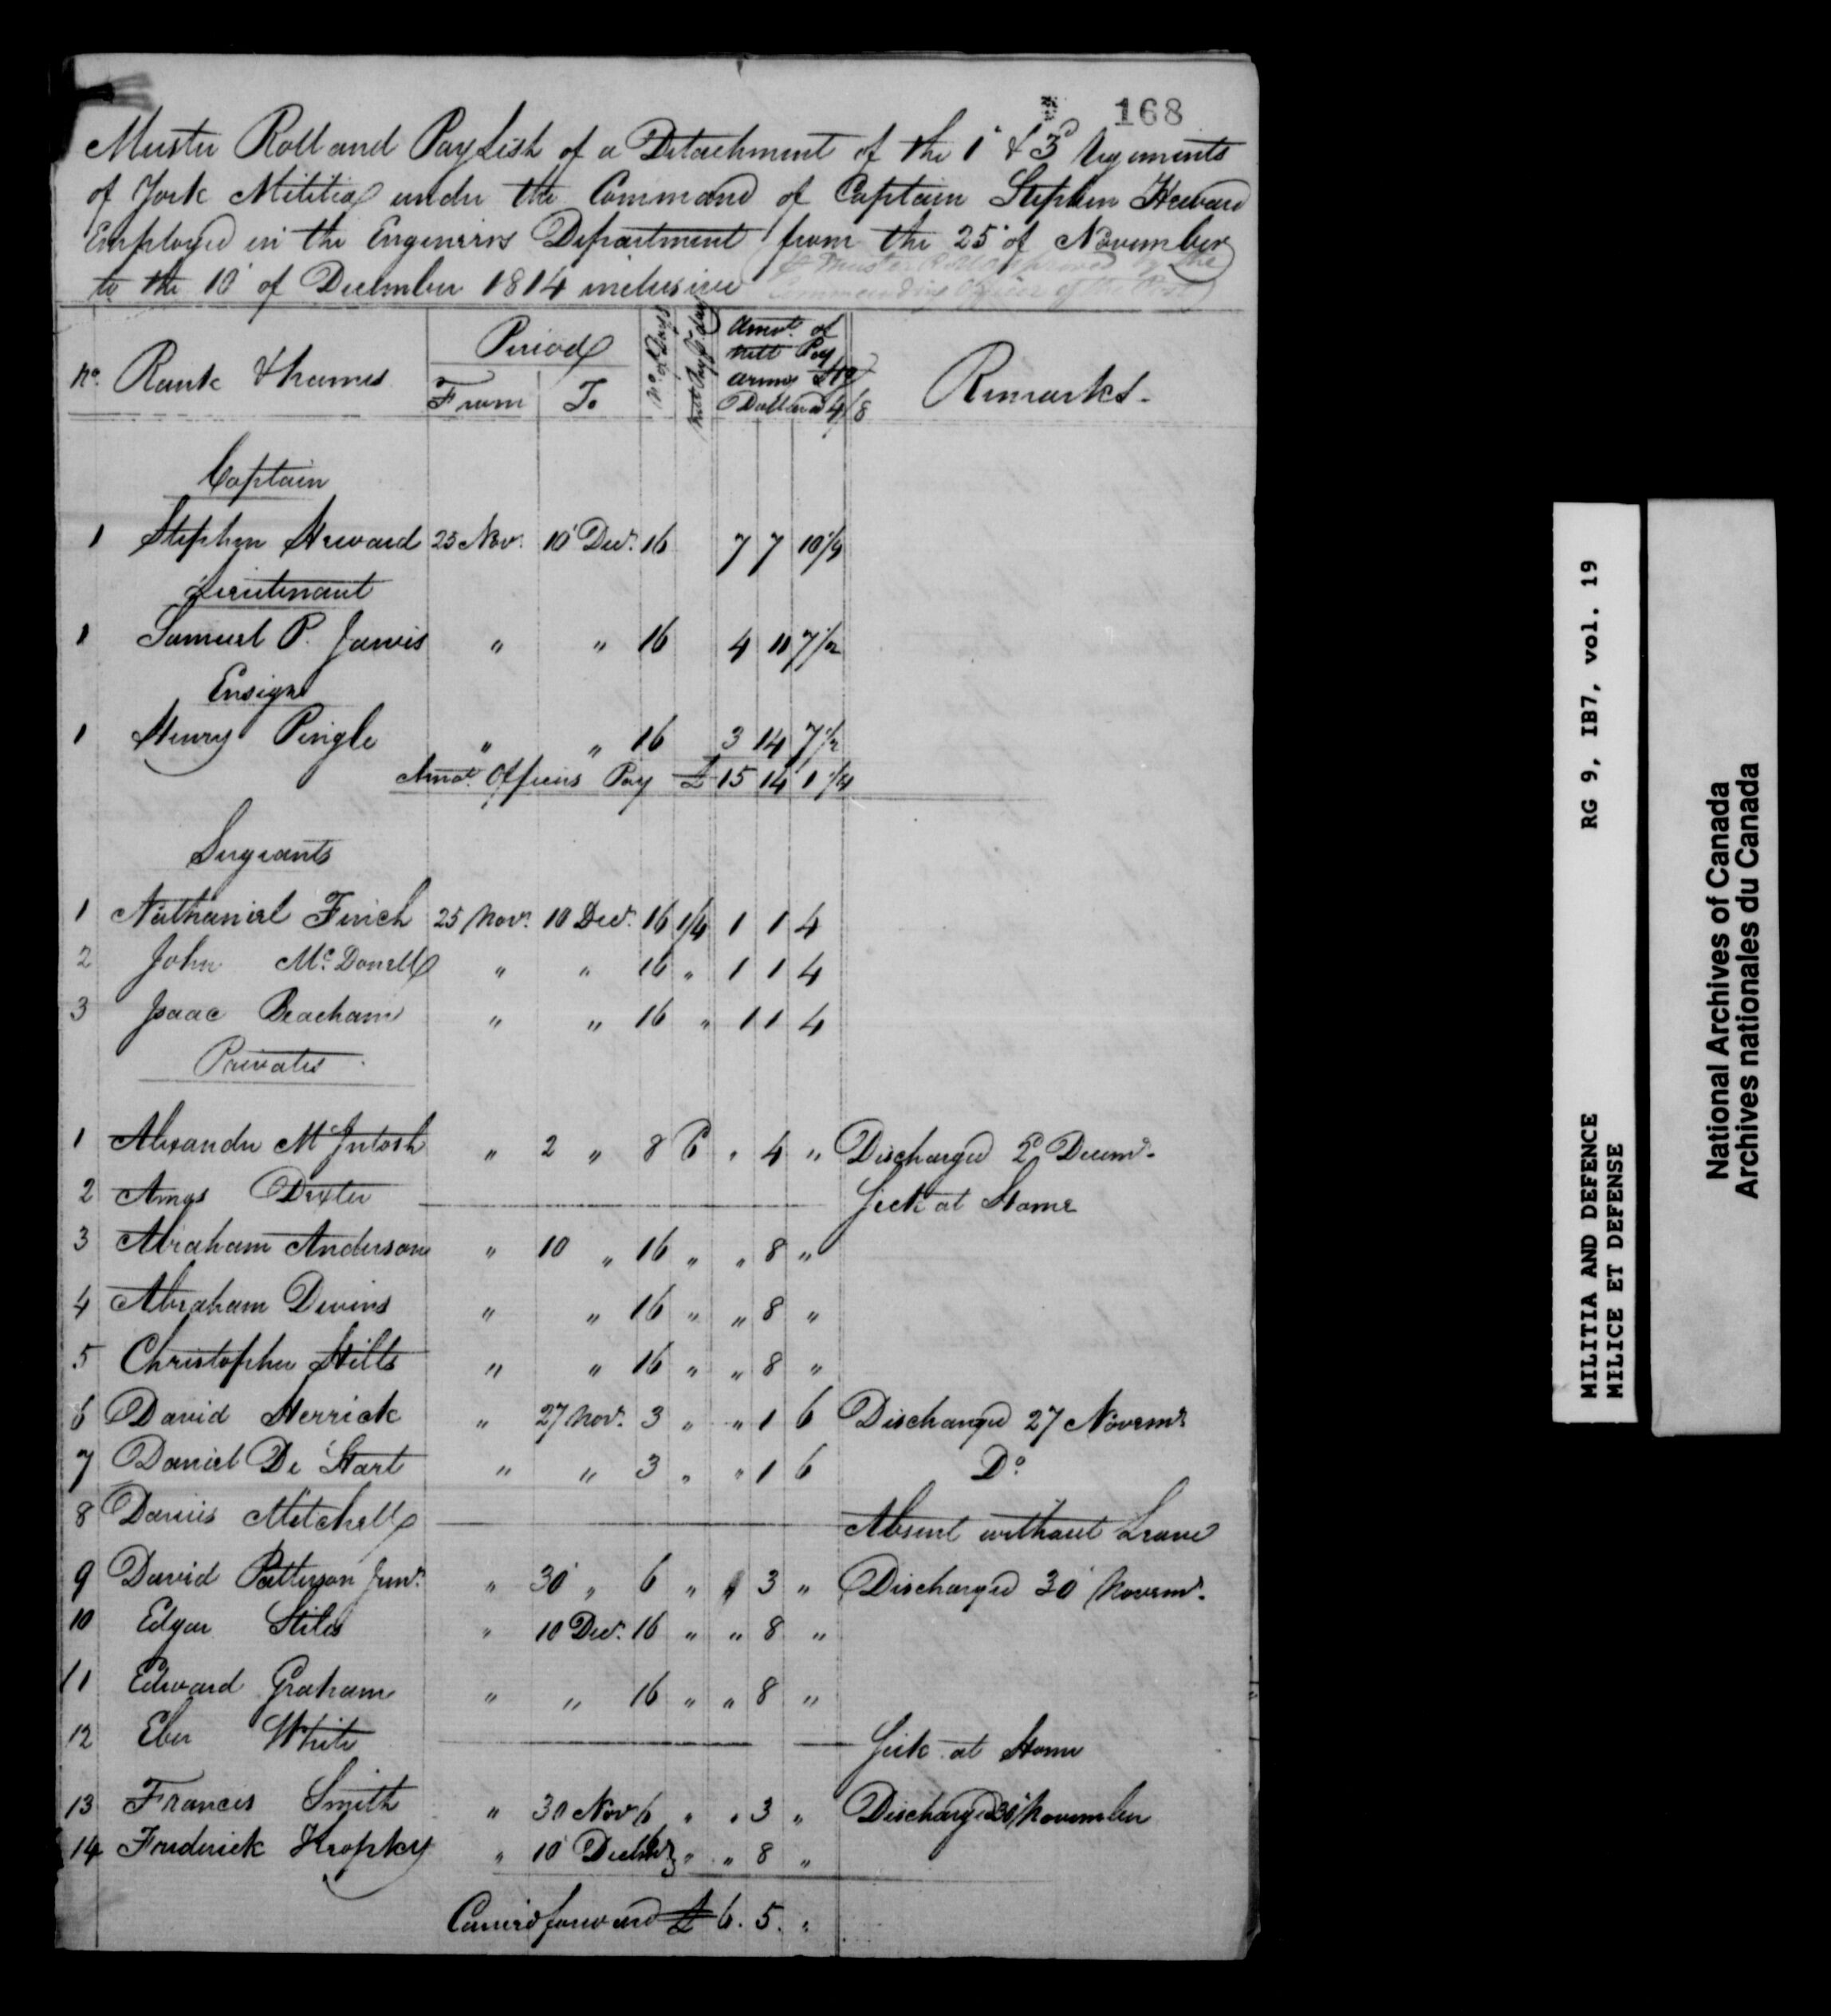 168
Muster Roll and Pay List of a Detachment of the 1st & 3d Regiments
of York Militia under the Command of Captain Stephen Heward
Employed in the Engineers Department from the 25th of November
to the 10th of December 1814 inclusive
& Muster Roll approved by the
Commanding Officer of the Post
No. Rank & Names Period From To No. of Days Nett Pay Pr. day Amot. of Nett Pay army Dollars 4/8 Remarks.
Captain
1 Stephen Heward 25 Nov. 10 Decr. 16 7 7 10 1/4
Lieutenant
1 Samuel P. Jarvis " " 16 4 11 7 1/2
Ensign
1 Henry Pingle " " 16 3 14 7 1/2
Amot. Officers Pay £ 15 14 1 1/4
Sergeants
1 Nathaniel Finch 25 Novr. 10 Decr. 16 1/4 1 1 4
2 John McDonell " " 16 " 1 1 4
3 Isaac Beacham " " 16 " 1 1 4
Privates
1 Alexander McIntosh " 2 " 8 6 " 4 " Discharged 2d Decemr.
2 Amos Dexter Sick at Home
3 Abraham Anderson " 10 " 16 " " 8 "
4 Abraham Devins " " 16 " " 8 "
5 Christopher Hilts " " 16 " " 8 "
6 David Herrick " 27 Novr. 3 " " 1 6 Discharged 27 Novemr.
7 Daniel De Hart " " 3 " " 1 6 Do.
8 Darius Mitchell Absent without Leave
9 David Patterson Junr. " 30 " 6 " " 3 " Discharged 30 Novemr.
10 Edgar Stiles " 10 Decr. 16 " " 8 "
11 Edward Graham " " 16 " " 8 "
12 Eber White Sick at Home
13 Francis Smith " 30 Novr 6 " " 3 " Discharged 30 November
14 Frederick Kropky " 10 " " 8 "
Carried forward £ 6. 5. "
MILITIA AND DEFENCE RG 9, IB7, vol. 19
MILICE ET DEFENSE
National Archives of Canada
Archives nationales du Canada